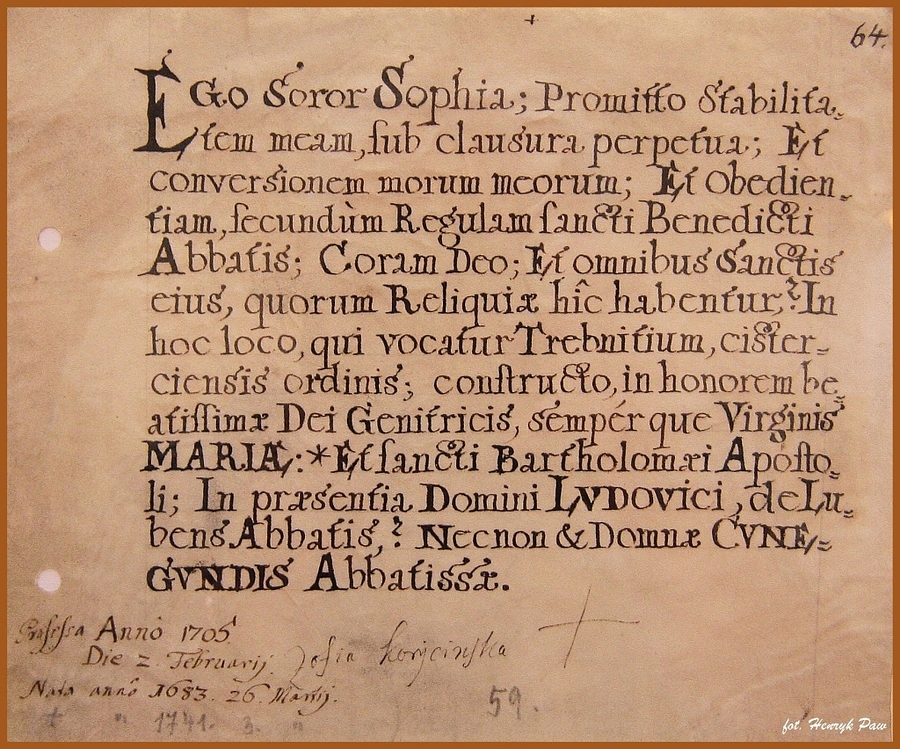 64.
EGo Soror Sophia; Promitto Stabilita-
tem meam, sub clausura perpetua; Et
conversionem morum meorum; Et Obedien-
tiam, secundùm Regulam sancti Benedicti
Abbatis; Coram Deo; Et omnibus Sanctis
eius, quorum Reliquiæ hîc habentur, In
hoc loco, qui vocatur Trebnitium, cister-
ciensis ordinis; constructo, in honorem be-
atissimæ Dei Genitricis, semper que Virginis
MARIÆ: * Et sancti Bartholomæi Aposto-
li; In præsentia Domini LVDOVICI, de Lu-
bens Abbatis, Necnon & Domnæ CVNE-
GVNDIS Abbatissæ.
Professa Anno 1705
Die 2 Februarij. Zofia Korycinska
Nata anno 1683. 26 Martij.
1741. 3. "
59.
fot. Henryk Paw